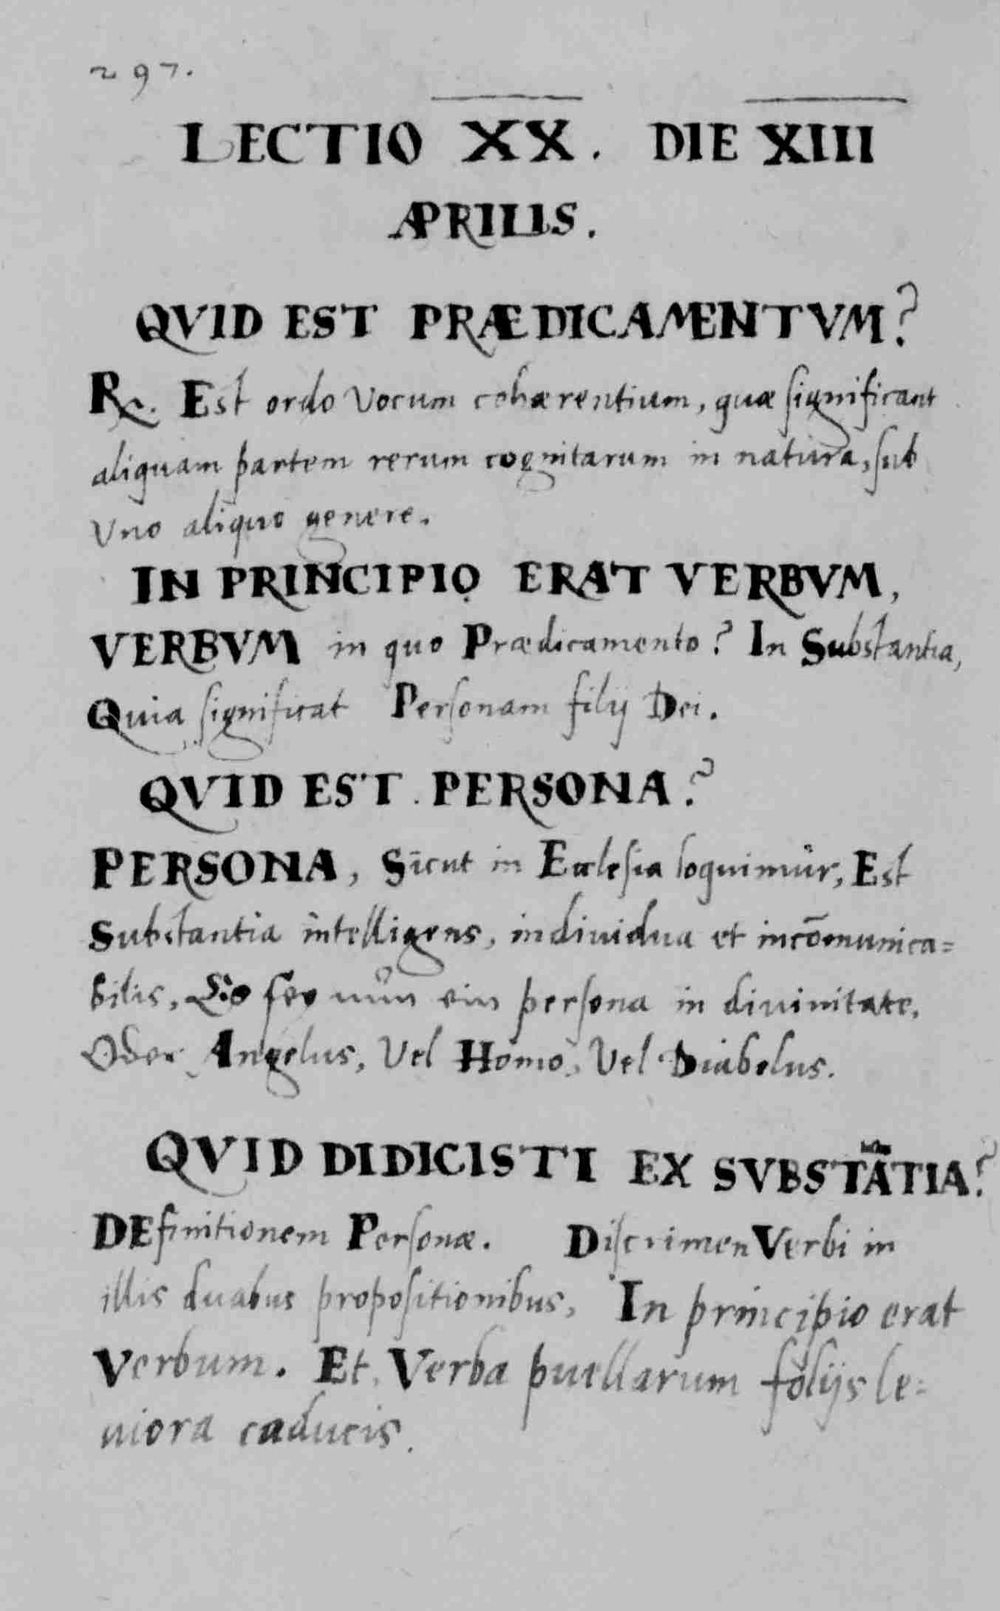 297.
LECTIO XX. DIE XIII
APRILIS.
QVID EST PRÆDICAMENTVM?
R. Est ordo Vocum cohærentium, quæ significant
aliquam partem rerum cognitarum in natura, sub
Vno aliquo genere.
IN PRINCIPIO ERAT VERBVM,
VERBVM in quo Prædicamento? In Substantia,
Quia significat Personam filij Dei.
QVID EST PERSONA?
PERSONA, Sicut in Ecclesia loquimur, Est
Substantia intelligens, indiuidua et incōmunica=
bilis, Es sey nun ein persona in diuinitate,
Oder Angelus, Vel Homo, Vel Diabolus.
QVID DIDICISTI EX SVBSTĀTIA?
DEfinitionem Personæ. Discrimen Verbi in
illis duabus propositionibus, In principio erat
Verbum. Et, Verba puellarum folijs le=
uiora caducis.